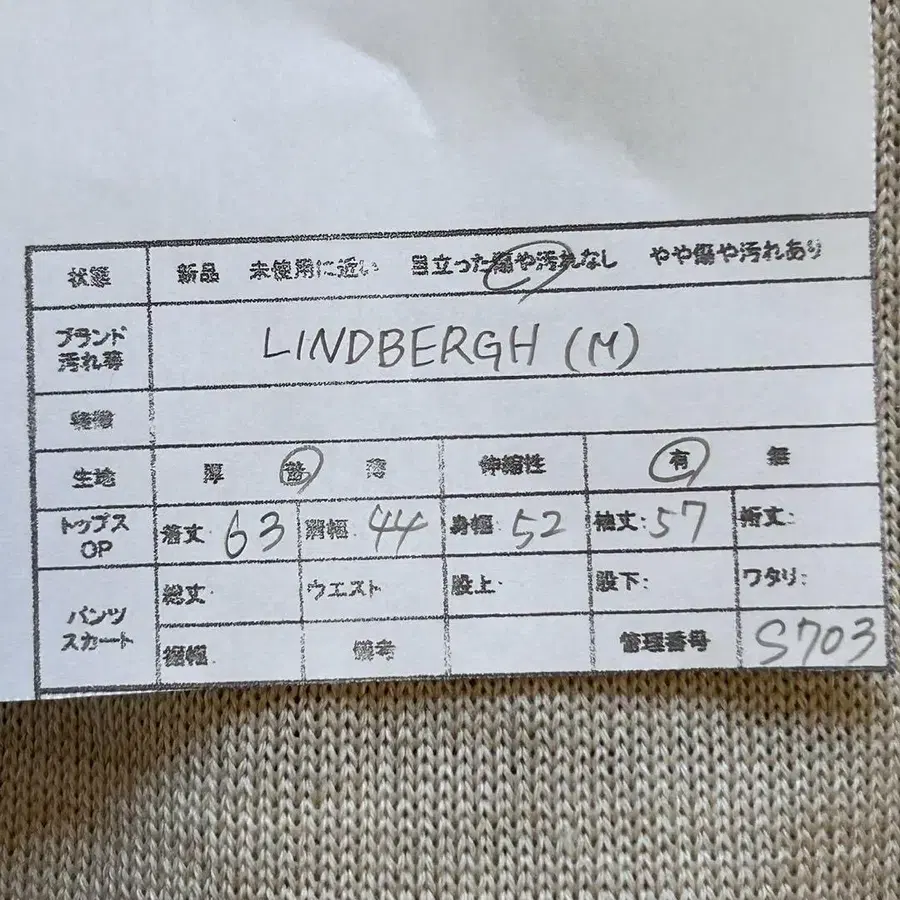 状態 新品 未使用に近い 目立った傷や汚れなし やや傷や汚れあり
ブランド 汚れ等 LINDBERGH (M)
特徴
生地 厚 普 薄 伸縮性 有 無
トップス OP 着丈: 63 肩幅: 44 身幅: 52 袖丈: 57 裄丈:
パンツ スカート 総丈: ウエスト 股上: 股下: ワタリ:
裾幅: 備考 管理番号 S703